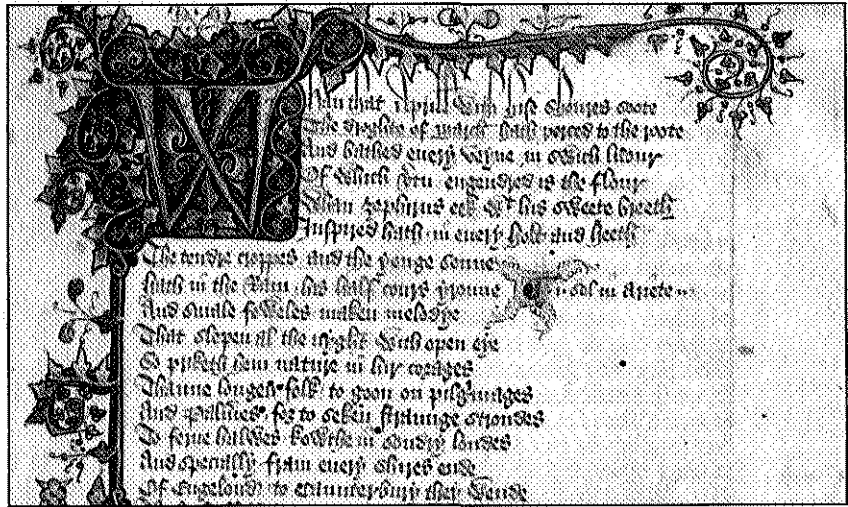 Whan that Aprill with his shoures soote
The droghte of March hath perced to the roote
And bathed euery veyne in swich licour
Of which vertu engendred is the flour
Whan zephirus eek wt his sweete breeth
Inspired hath in euery holt and heeth
The tendre croppes and the yonge sonne
hath in the Ram his half cours yronne sol in Ariete
And smale foweles maken melodye
That slepen al the nyght with open eye
So priketh hem nature in hir corages
Thanne longen folk to goon on pilgrimages
And Palmeres for to seken straunge strondes
To ferne halwes kowthe in sondry londes
And specially fram euery shires ende
Of Engelond to Caunterbury they wende